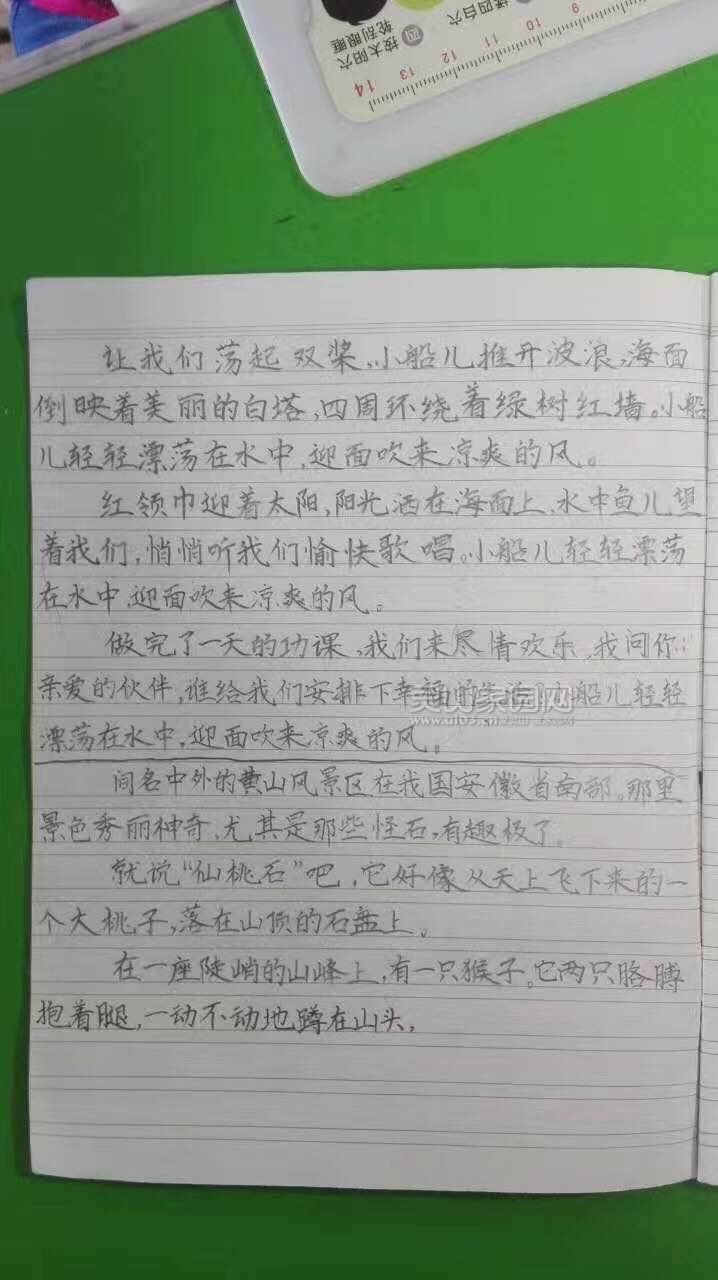 按太阳穴
轮刮眼眶
四
按四白穴
14 13 12 11 10 9
让我们荡起双桨,小船儿推开波浪,海面
倒映着美丽的白塔,四周环绕着绿树红墙。小船
儿轻轻漂荡在水中,迎面吹来凉爽的风。
红领巾迎着太阳,阳光洒在海面上,水中鱼儿望
着我们,悄悄听我们愉快歌唱。小船儿轻轻漂荡
在水中,迎面吹来凉爽的风。
做完了一天的功课,我们来尽情欢乐,我问你:
亲爱的伙伴,谁给我们安排下幸福的生活?小船儿轻轻
漂荡在水中,迎面吹来凉爽的风。
间名中外的黄山风景区在我国安徽省南部。那里
景色秀丽神奇,尤其是那些怪石,有趣极了。
就说“仙桃石”吧,它好像从天上飞下来的一
个大桃子,落在山顶的石盘上。
在一座陡峭的山峰上,有一只猴子。它两只胳膊
抱着腿,一动不动地蹲在山头,